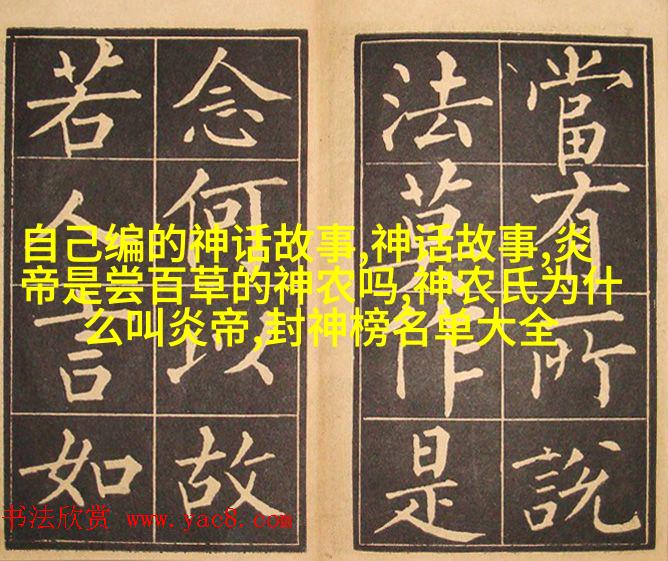 當有所說
法莫作是
念何以故
若人言如
自己编的神话故事,神话故事,炎
帝是尝百草的神农吗,神农氏为什
么叫炎帝,封神榜名单大全
书法欣赏 www.yac8.com